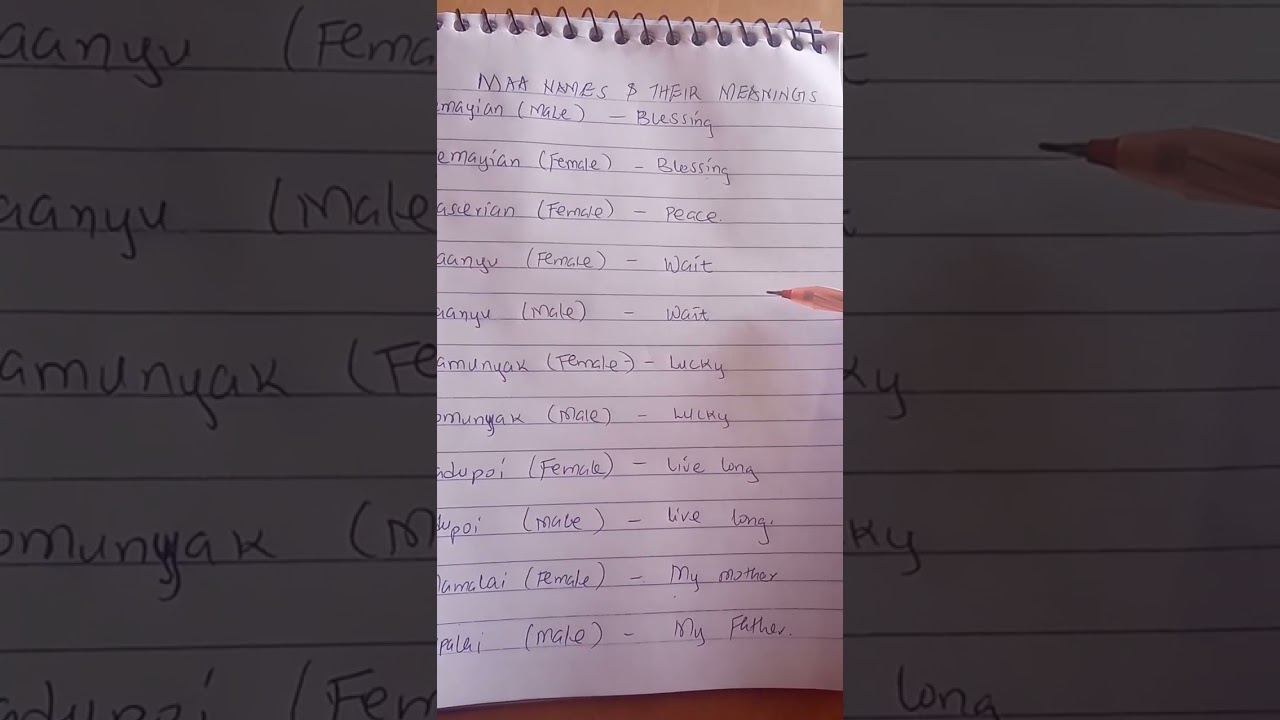 MAA NAMES & THEIR MEANINGS
mayian (Male) – Blessing
emayian (Female) – Blessing
aserian (Female) – Peace.
aanyu (Female) – Wait
aanyu (Male) – Wait
amunyak (Female) – Lucky
omunyak (Male) – Lucky
adupoi (Female) – live long
dupoi (Male) – live long.
amalai (Female) – My mother
palai (Male) – My Father.